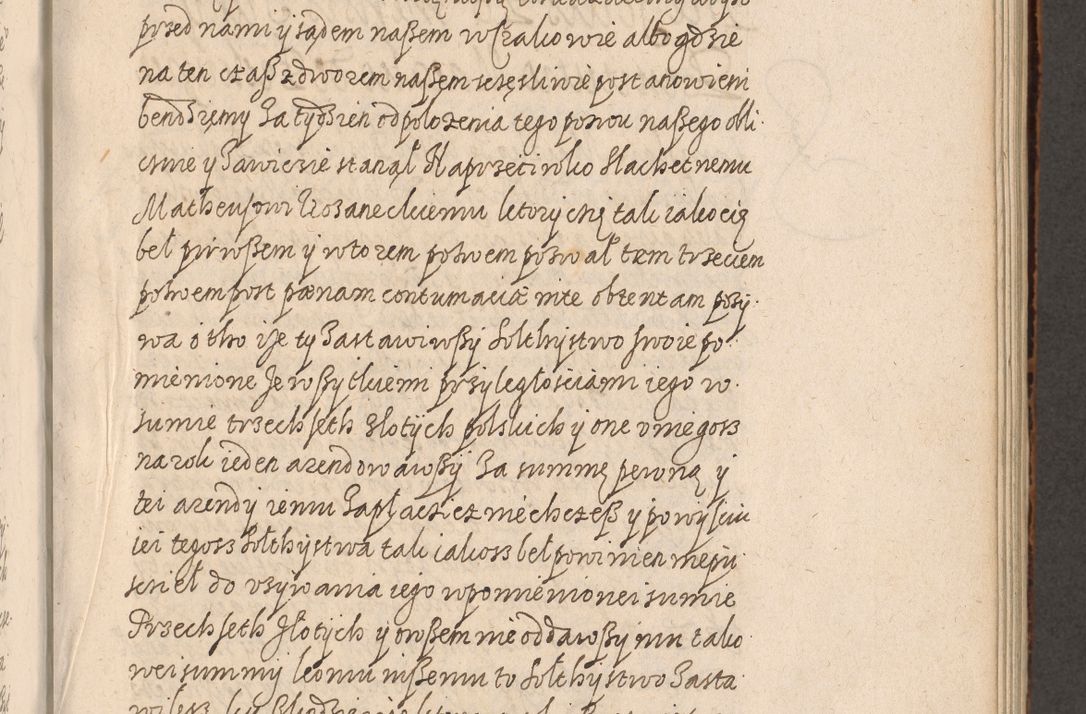 przed nami y sądem naßem w Czakowie albo gdzie
na ten czaß z dworem naßem sczęsliwie postanowieni
bendziemy Za tydzien od polozenia tego pozwu naßego obli
cznie y Zawiczie stanął Naprzeciwko Slachetnemu
Matheuszowi Rozaneckiemu ktory czię tak iako cię
beł pirwßem y wtorem pozwem pozwał tem trzeciem
pozwem post pænam contumaciæ rite obtentam pozy
wa o tho ize ty Zastawiwßy Solthystwo swoie po
mienione ze wßytkiemi przyległosciami iego w
sumie trzech seth Złotych polskich y one v niegosz
na rok ieden arendowawßy Za summę pewną y
tei arendy iemu Zapłacicz nie chczeß y po wysciu
iei tegosz Soltystwa tak iakosz beł powinien nie pu
sciéł do vzywania iego w pomienionei sumie
Trzech seth Złotych y owßem nie oddawßy mu tako
wei summy komu inßemu to Soltystwo Zasta